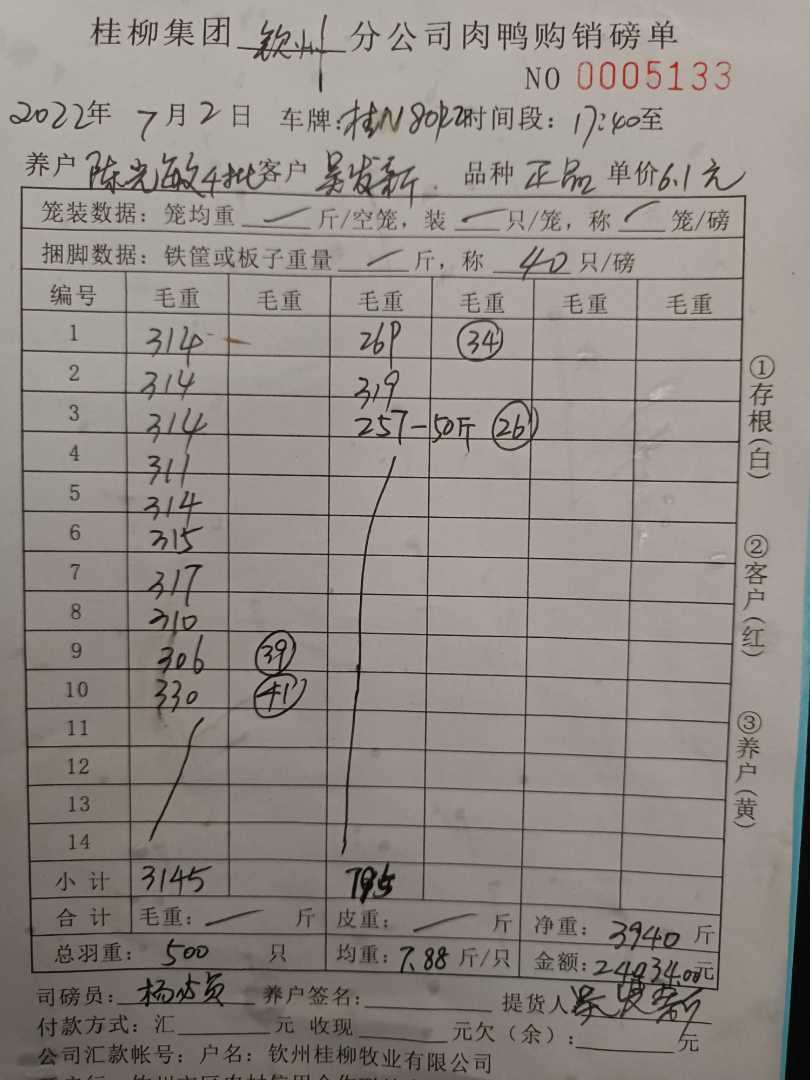 桂柳集团 钦州 分公司肉鸭购销磅单
NO 0005133
2022年 7月2日 车牌:桂N 时间段: 17:40至
养户 陈光敏4批 客户 吴发新 品种 正品 单价6.1元
笼装数据: 笼均重 — 斤/空笼, 装 — 只/笼, 称 — 笼/磅
捆脚数据: 铁筐或板子重量 — 斤, 称 40 只/磅
编号 毛重 毛重 毛重 毛重 毛重 毛重
1 314 269 34
2 314 319
3 314 257-50斤 26
4 311
5 314
6 315
7 317
8 310
9 306 39
10 330 41
11
12
13
14
小计 3145 795
合计 毛重: — 斤 皮重: — 斤 净重: 3940 斤
总羽重: 500 只 均重: 7.88 斤/只 金额: 24034.00元
司磅员: 杨 养户签名: 提货人 吴发新
付款方式: 汇 元 收现 元欠(余): 元
公司汇款帐号: 户名: 钦州桂柳牧业有限公司
①存根(白)
②客户(红)
③养户(黄)